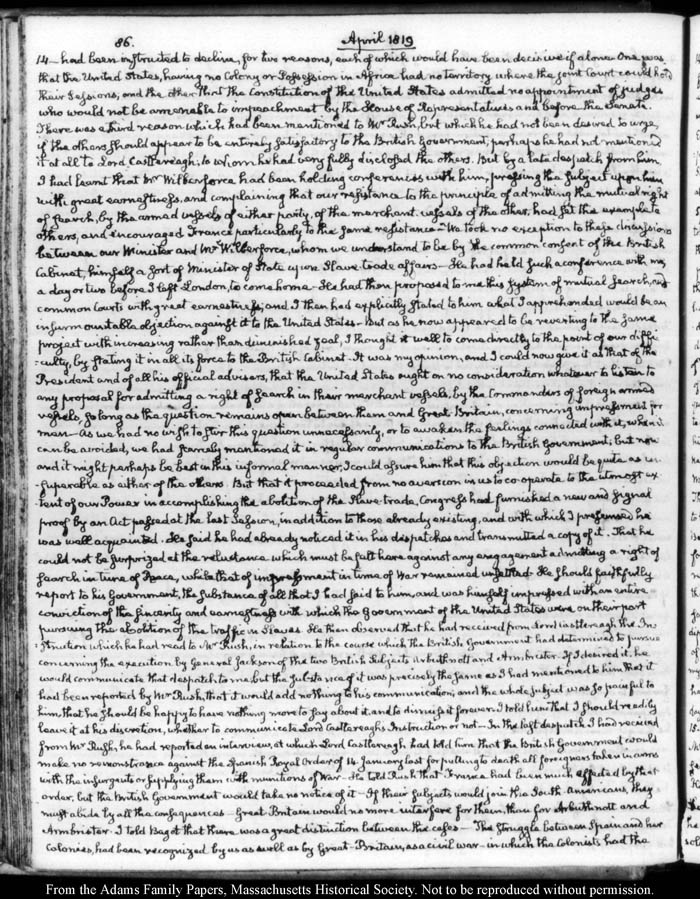 86.
April 1819
14— had been instructed to decline, for two reasons, each of which would have been decisive if alone. One was
that the United States, having no Colony or Possession in Africa had no territory where the joint Court could hold
their Sessions, and the other that the Constitution of the United States admitted no appointment of judges
who would not be amenable to impeachment by the House of Representatives and before the Senate.
There was a third reason which had been mentioned to Mr Rush, but which he had not been desired to urge,
if the others should appear to be entirely satisfactory to the British Government; perhaps he had not mentioned
it at all to Lord Castlereagh, to whom he had very fully disclosed the others. But by a late despatch from him
I had learnt that Mr Wilberforce had been holding conferences with him, pressing the subject upon him
with great earnestness, and complaining that our resistance to the principle of admitting the mutual right
of search, by the armed vessels of either party, of the merchant vessels of the other, had set the example to
others, and encouraged France particularly to the same resistance— We took no exception to these discussions
between our Minister and Mr Wilberforce, whom we understand to be by the common consent of the British
Cabinet, himself a sort of Minister of State upon Slave trade affairs— He had held such a conference with me,
a day or two before I left London, to come home— He had then proposed to me this system of mutual search, and
common Courts with great earnestness; and I then had explicitly stated to him what I apprehended would be an
insurmountable objection against it to the United States— But as he now appeared to be reverting to the same
project with increasing rather than diminished zeal, I thought it well to come directly to the point of our diffi-
-culty, by stating it in all its force to the British Cabinet— It was my opinion, and I could now give it as that of the
President and of all his official advisors, that the United States ought on no consideration whatever to listen to
any proposal for admitting a right of search in their merchant vessels, by the Commanders of foreign armed
vessels, so long as the question remains open between them and Great Britain, concerning impressment of
men— As we had no wish to stir this question unnecessarily, or to awaken the feelings connected with it, when it
can be avoided, we had scarcely mentioned it in regular communications to the British Government; but now
and it might perhaps be best in this informal manner, I could assure him that this objection would be quite as in-
-superable as either of the others. But that it proceeded from no aversion in us to co-operate to the utmost ex-
tent of our Power in accomplishing the abolition of the Slave-trade, Congress had furnished a new and signal
proof by an Act passed at the last Session, in addition to those already existing, and with which I presumed he
was well acquainted. He said he had already noticed it in his despatches and transmitted a copy of it. That he
could not be surprized at the reluctance which must be felt here against any engagement admitting a right of
search in time of Peace, while that of impressment in time of War remained unsettled. He should faithfully
report to his Government, the substance of all that I had said to him, and was himself impressed with an entire
conviction of the sincerity and earnestness with which the Government of the United States were on their part
pursuing the abolition of the traffic in Slaves. He then observed that he had received from Lord Castlereagh the In-
-struction which he had read to Mr Rush, in relation to the course which the British Government had determined to pursue
concerning the execution by General Jackson of the two British Subjects Arbuthnott and Ambrister. If I desired it, he
would communicate that despatch to me but the substance of it was precisely the same as I had mentioned to him that it
had been reported by Mr Rush, that it would add nothing to his communication; and the whole subject was so painful to
him, that he should be happy to have nothing more to say about it, and to dismiss it forever. I told him that I should readily
leave it at his discretion, whether to communicate Lord Castlereagh's Instruction or not— In the last despatch I had received
from Mr Rush, he had reported an interview, at which Lord Castlereagh had told him that the British Government would
make no remonstrance against the Spanish Royal Order of 14 January last for putting to death all foreigners taken in arms
with the insurgents or supplying them with munitions of War— He told Rush that France had been much affected by that
order, but the British Government would take no notice of it— If their subjects would join the South-Americans, they
must abide by all the consequences— Great Britain would no more interfere for them, than for Arbuthnott and
Ambrister— I told Bagot that there was a great distinction between the cases— The struggle between Spain and her
Colonies, had been recognized by us as well as by Great-Britain, as a civil war— in which the Colonists had the
From the Adams Family Papers, Massachusetts Historical Society. Not to be reproduced without permission.